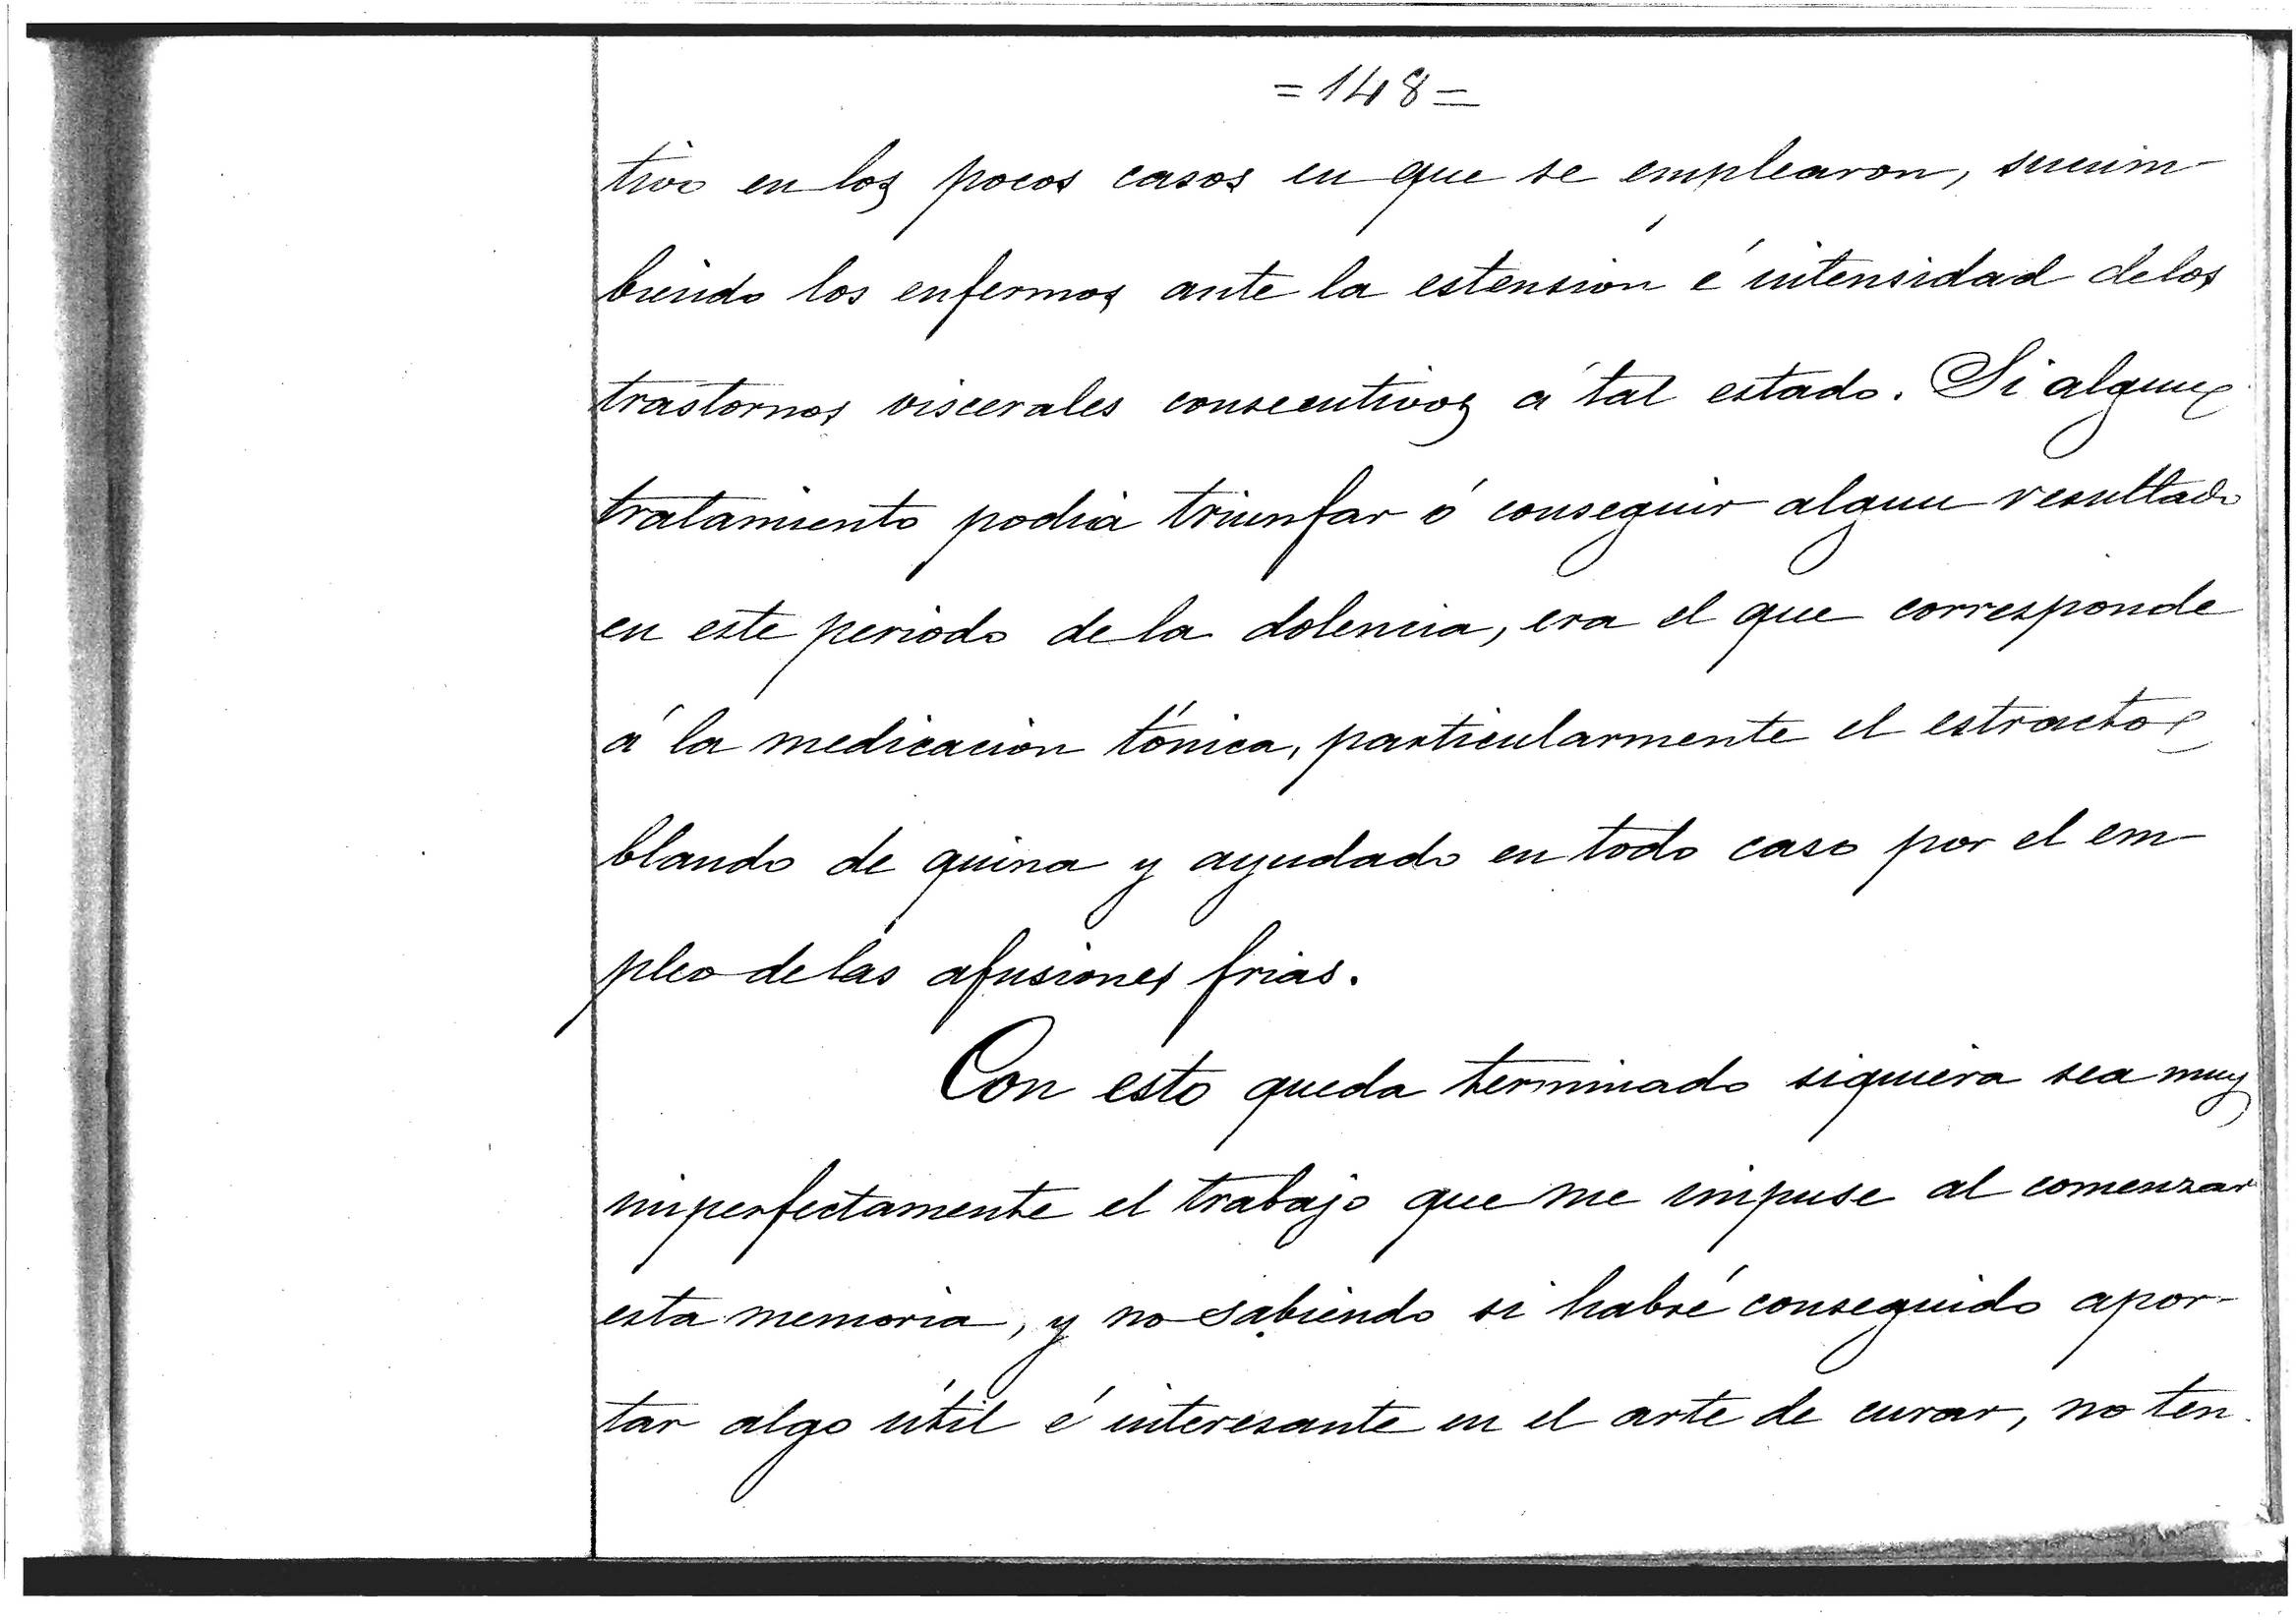 =148=
tivo en los pocos casos en que se emplearon, sucum-
biendo los enfermos ante la estension é intensidad de los
trastornos viscerales consecutivos á tal estado. Si algun
tratamiento podia triunfar ó conseguir algun resultado
en este periodo de la dolencia, era el que corresponde
á la medicacion tónica, particularmente el estracto
blando de quina y ayudado en todo caso por el em-
pleo de las afusiones frias.
Con esto queda terminado siquiera sea muy
imperfectamente el trabajo que me impuse al comenzar
esta memoria, y no sabiendo si habré conseguido apor-
tar algo útil é interesante en el arte de curar, no ten